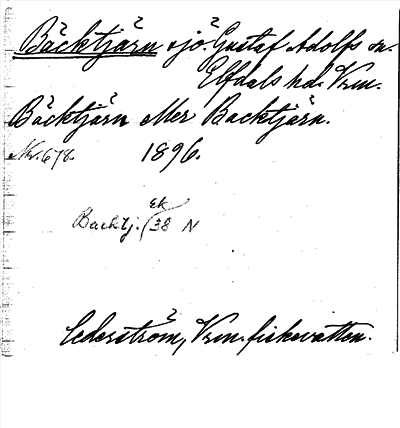 Bäcktjärn sjö. Gustaf Adolfs sn.
Elfdals hd. Vrm.
Bäcktjärn eller Backtjärn.
Nr. 678. 1896.
Ek
Backtj. (38 N
Cederström, Vrm. fiskevatten.